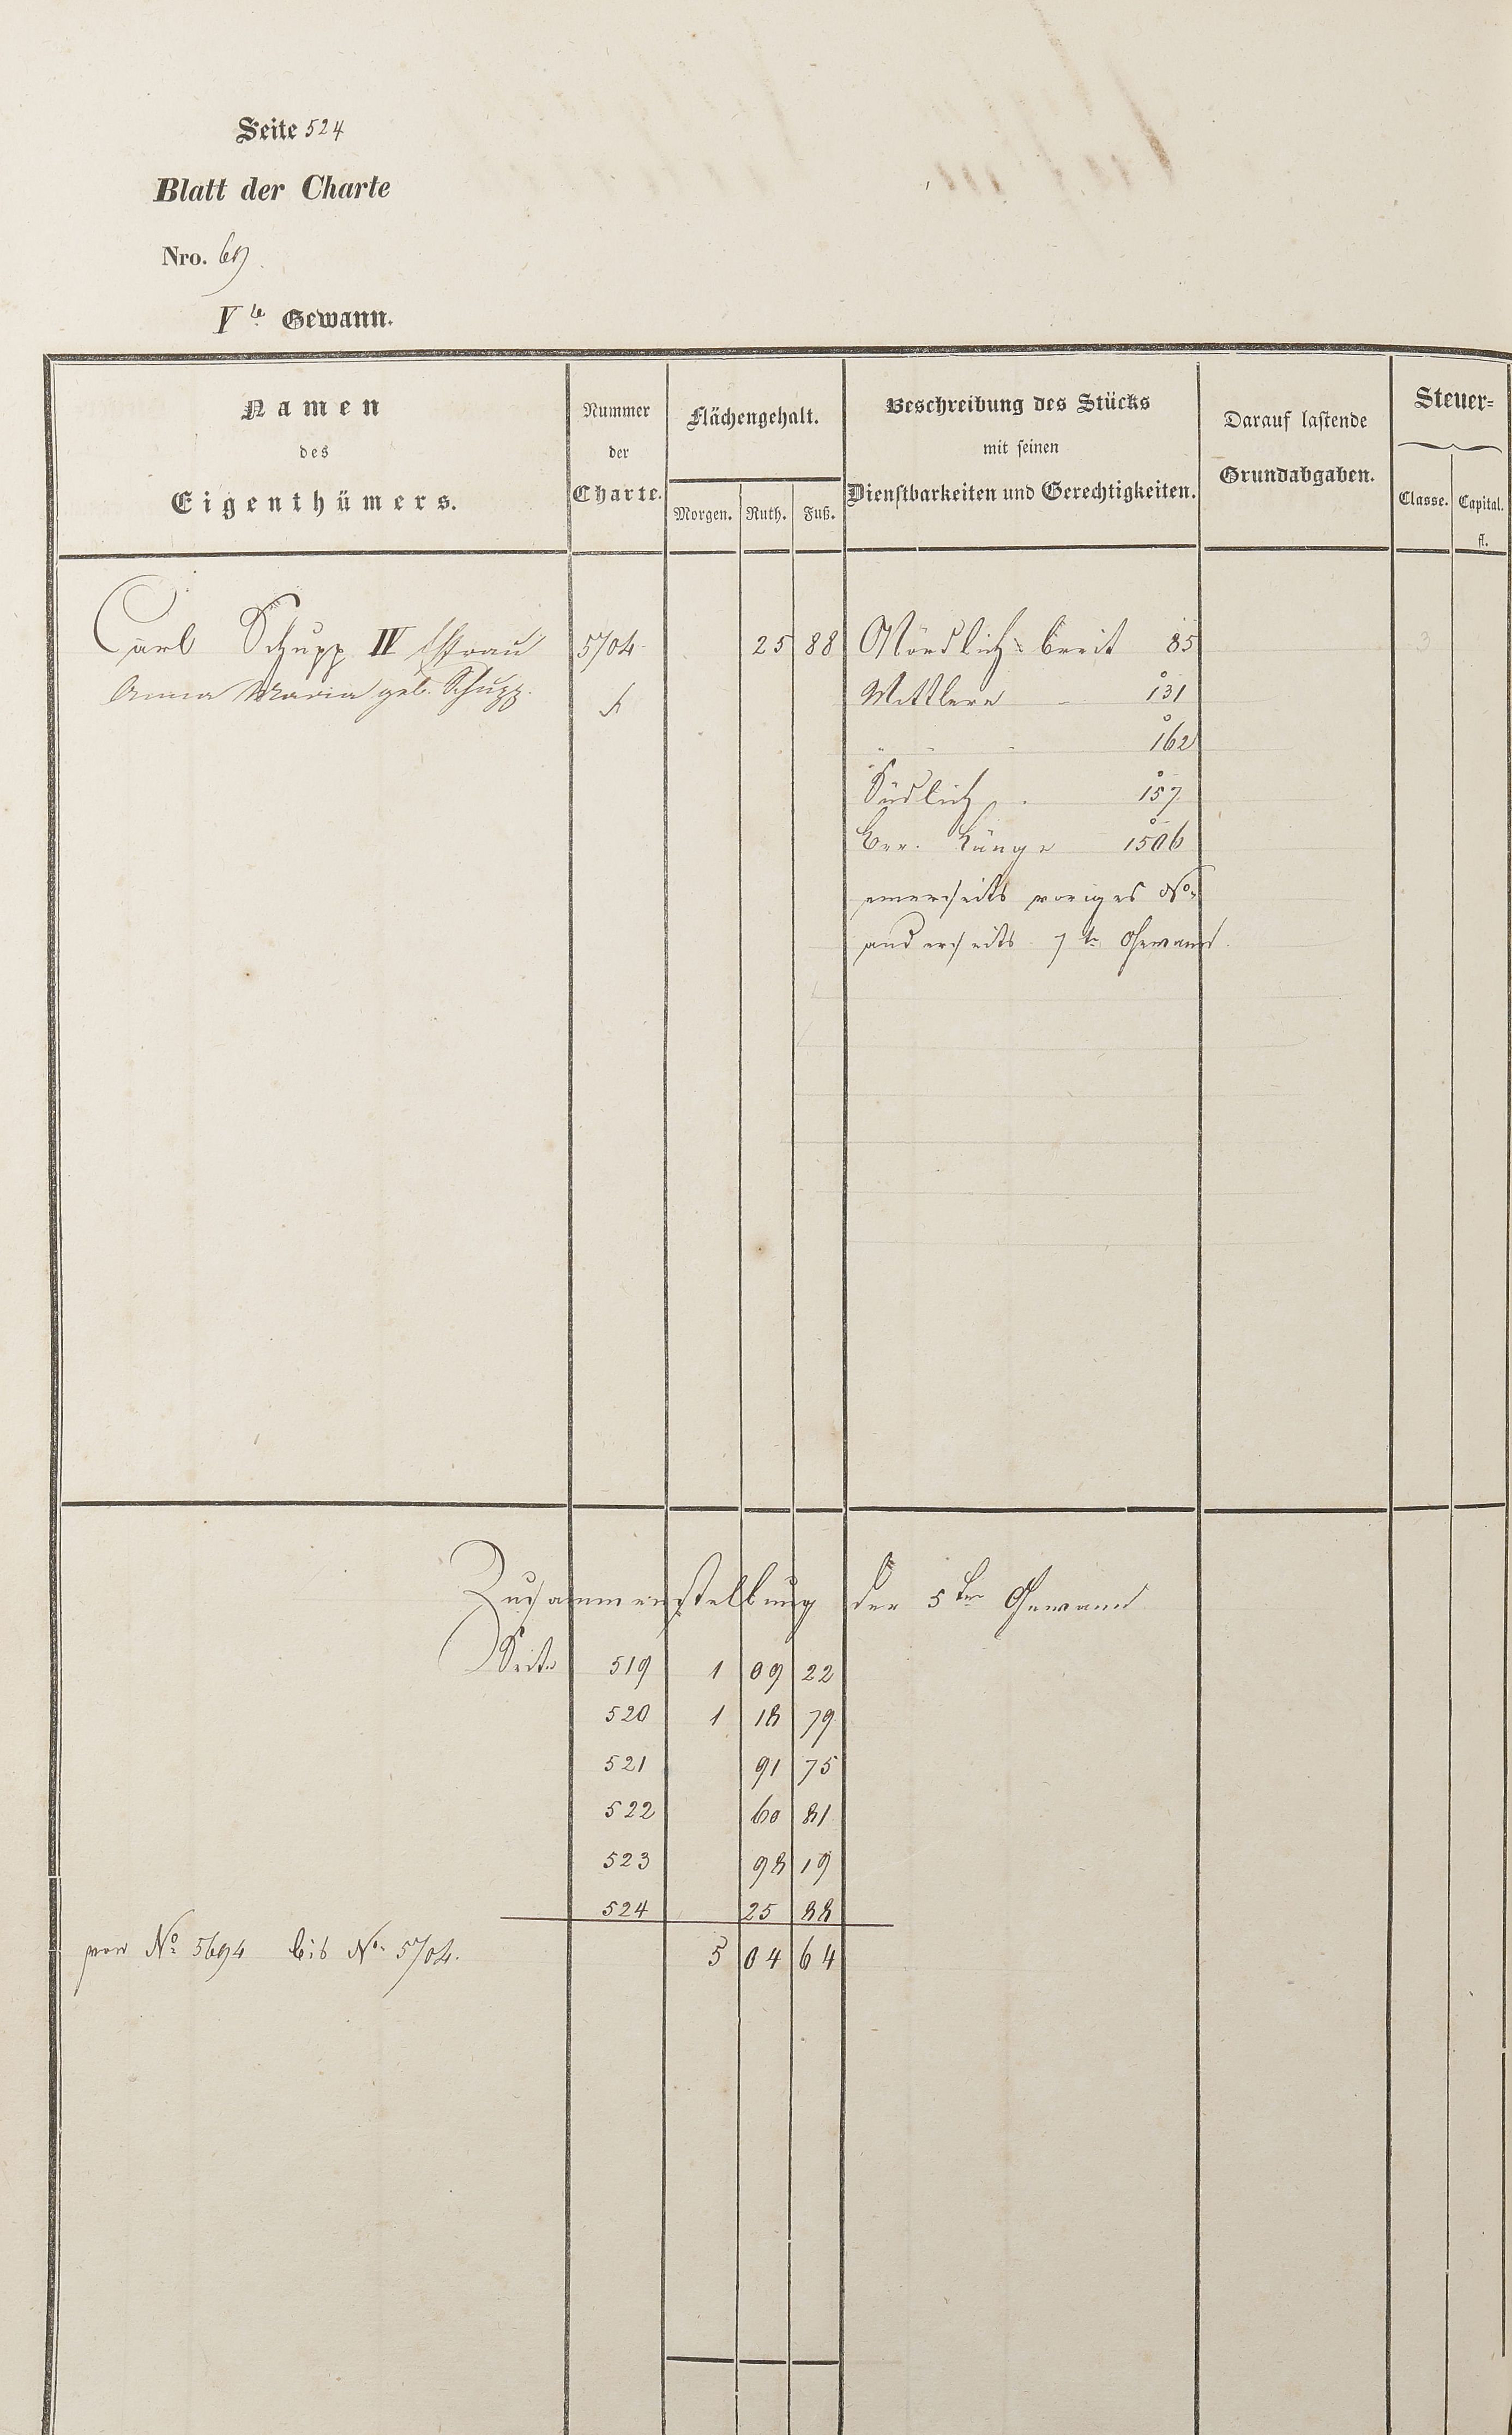 Seite 524
Blatt der Charte
Nro. 69
Vte Gewann.
Namen des Eigenthümers.
Nummer der Charte.
Flächengehalt.
Morgen. Ruth. Fuß.
Beschreibung des Stücks mit seinen Dienstbarkeiten und Gerechtigkeiten.
Darauf lastende Grundabgaben.
Steuer=
Classe. Capital. fl.
Carl Schupp IV Ehefrau 5704 25 88 Nördlich breit 85
Anna Maria geb. Schupp. Mittlere 131
" - - 162
Südlich 157
Ver. Länge 1506
einerseits voriges No.
anderseits 7te Gewann.
Zusammenstellung der 5ten Gewann
Seite 519 1 09 22
520 1 18 79
521 91 75
522 60 81
523 98 19
524 25 88
von No. 5694 bis No. 5704. 5 04 64